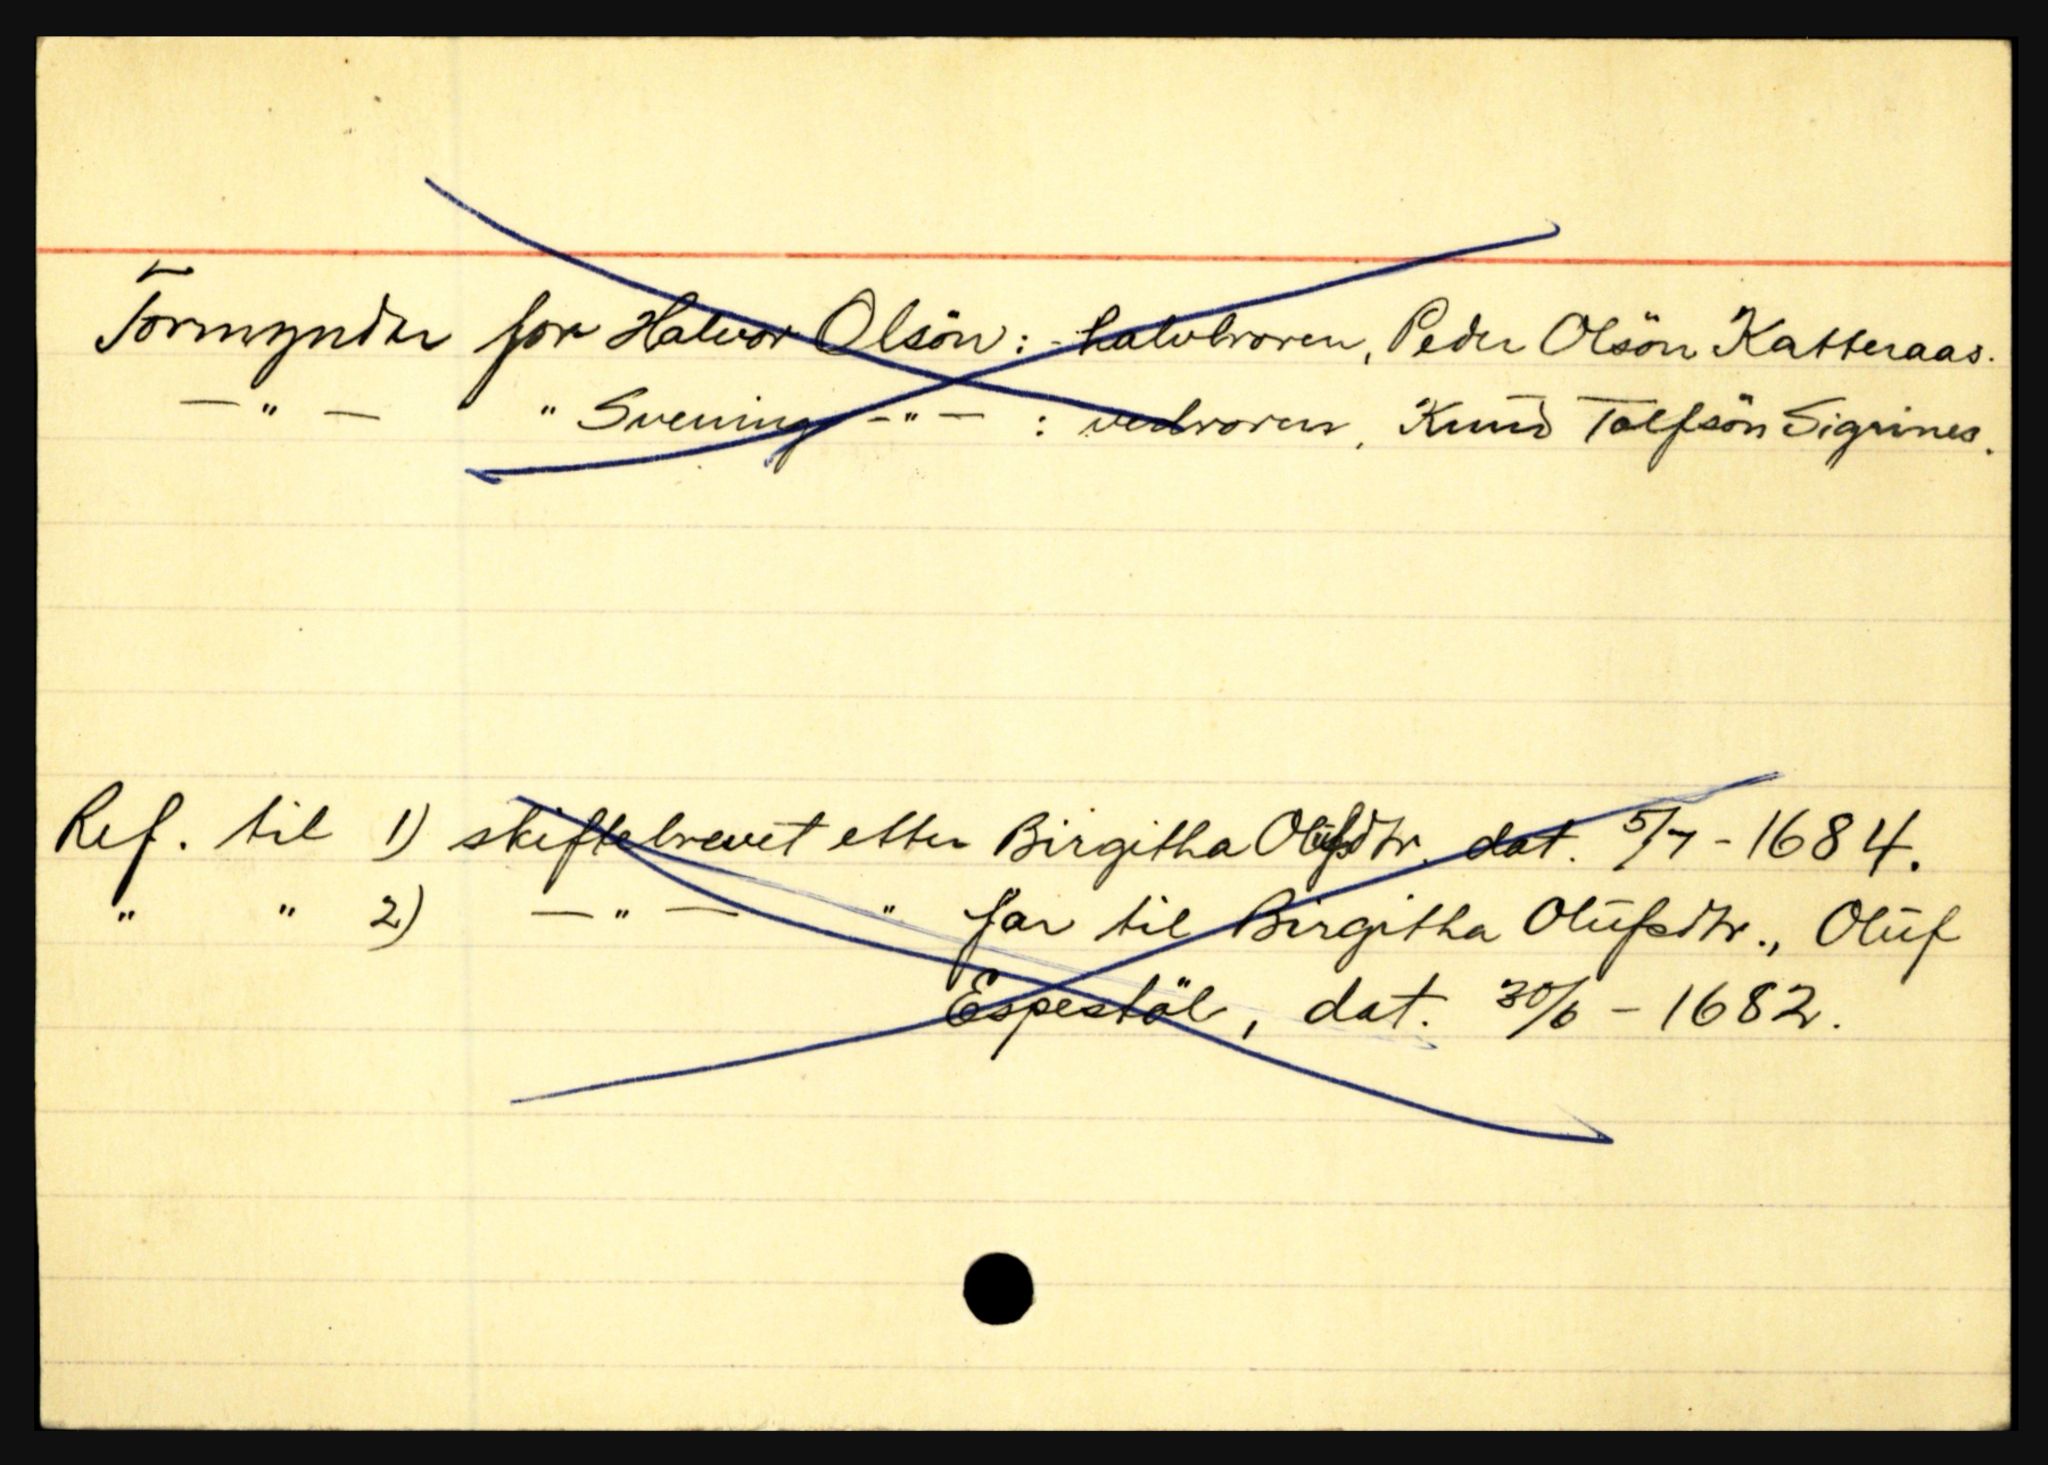 Formynder for Halvor Olsön: halvbroren, Peder Olsön Katteraas.
— " — " Svening — " — : verbroren, Knud Tolfsön Sigrines.
Ref. til 1) skiftebrevet etter Birgitha Olufsdtr. dat. 5/7 - 1684.
" " 2) — " — " far til Birgitha Olufsdtr., Oluf
Espestöl, dat. 30/6 - 1682.